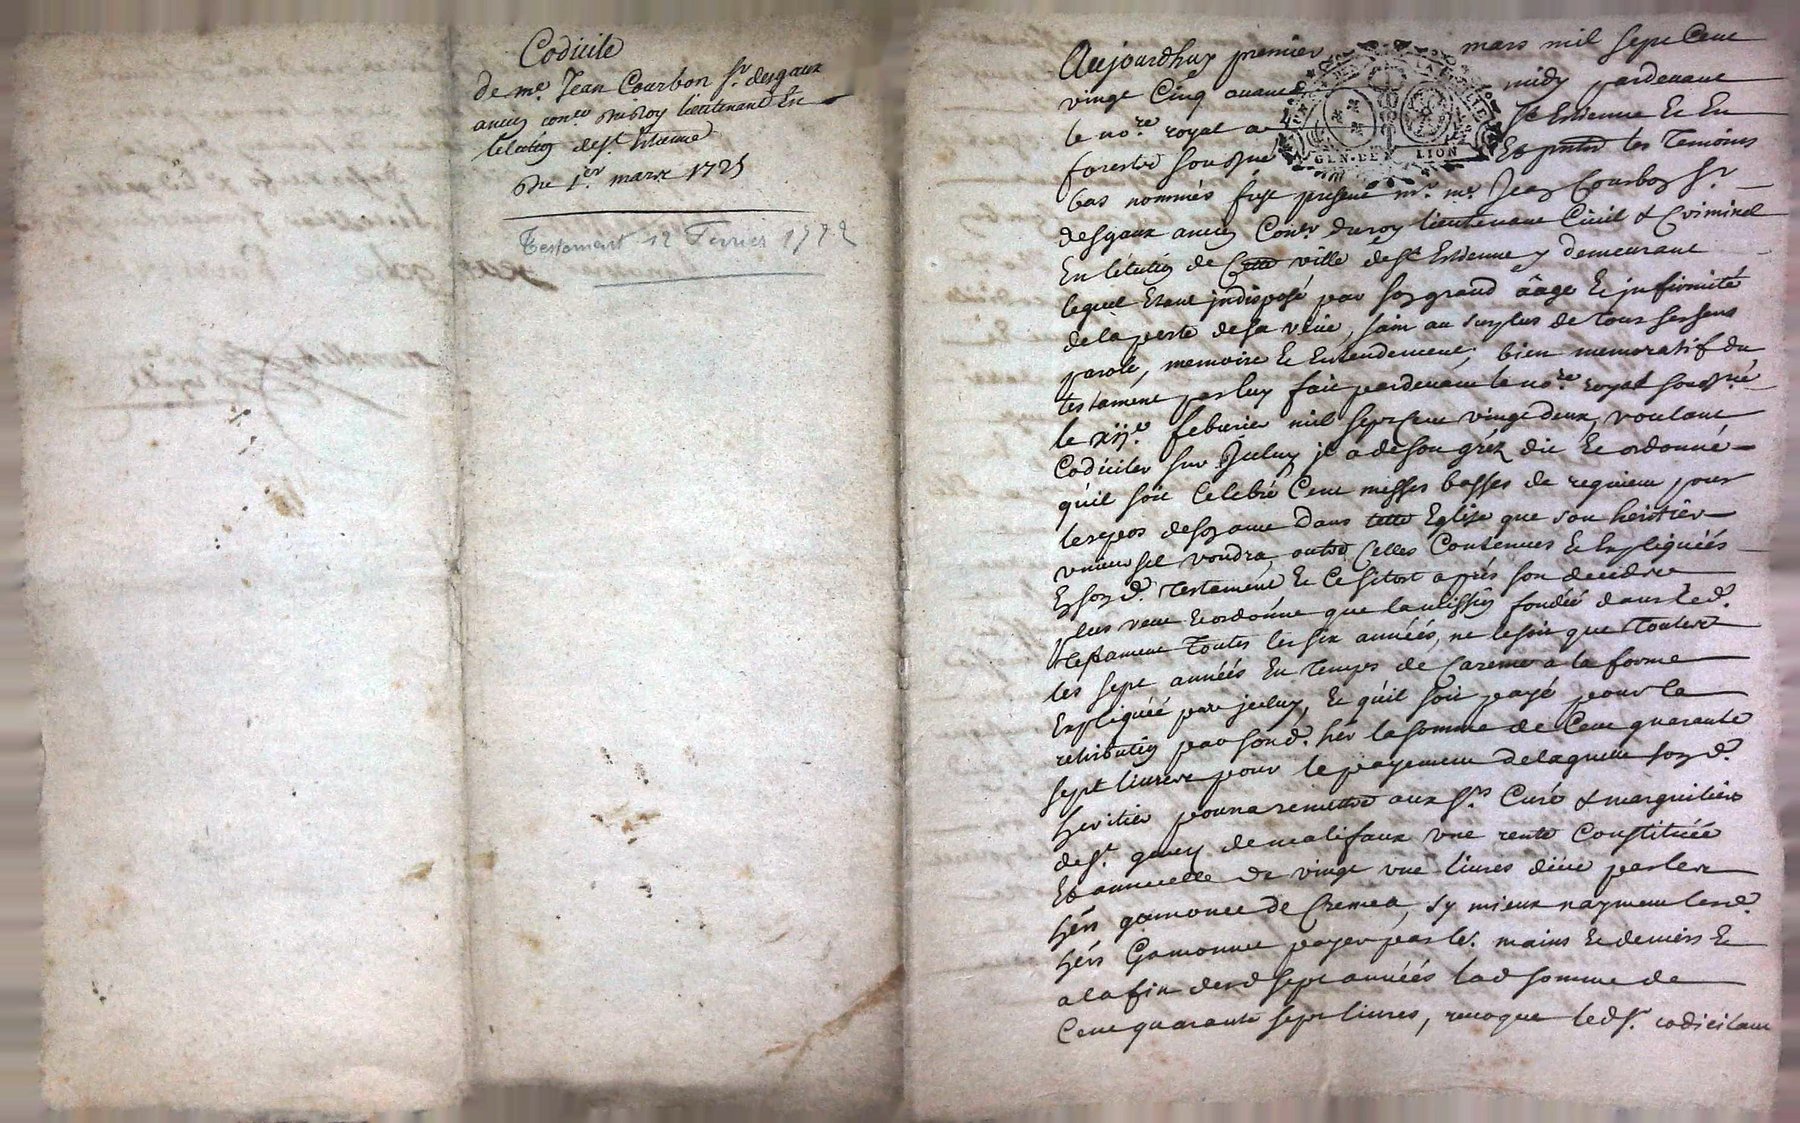 Codicile
de me. Jean Courbon sr. desgaux
ancien coner. du Roy lieutenant En
lelection de st. Estienne
du 1er. mars 1725
Testament 12 Fevrier 1772
Aujourdhuy premier mars mil sept Cent
vingt Cinq avant midy pardevant
le nore. royal a st. Estienne Et En
forests sousigné Et present les Temoins
bas nommés fust present mr. me. Jean Courbon sr.
desgaux ancien Coner. du roy lieutenant Civil & Criminel
En lélection de Cette ville de st. Estienne y demeurant
lequel Etant jndisposé par son grand âage Et jnfirmité
de la perte de sa veüe, sain au surplus de tous ses sens
parole, memoire Et Entendement, bien memoratif du
testament par luy fait pardevant le nore. royal sousigné
le xije. febvrier mil sept Cent vingt deux, voulant
Codiciler sur Jceluy jl a de son gréz dit Et ordonné
qu'il soit Celebré Cent messes basses de requiem pour
le repos de son ame dans telle Eglise que son heritier
universel voudra outre Celles Contenues Et Expliquéés
En son d. Testament Et Ce sitost aprés son decedz
plus veut Et ordonne que la mission fondéé dans led.
testament toutes les six annéés, ne le soit que toutes
les sept annéés En Temps de Careme a la forme
Expliquéé par jceluy, Et qu'il soit payé pour la
retribution par son d. her la somme de Cent quarante
sept livres pour le payement de laquelle son d.
heritier pourra remettre aux srs. Curé & marguiliers
de st. genez de malifaux une rente Constituéé
Et annuelle de vingt une livres deüe par les
hérs gamonet de Cremea, sy mieux n'ayment lesd.
hérs Gamonet payer par les mains Et deniers Et
a la fin desd sept annéés lad somme de
Cent quarante sept livres, revoque led sr. codicilant
GEN·DE LION